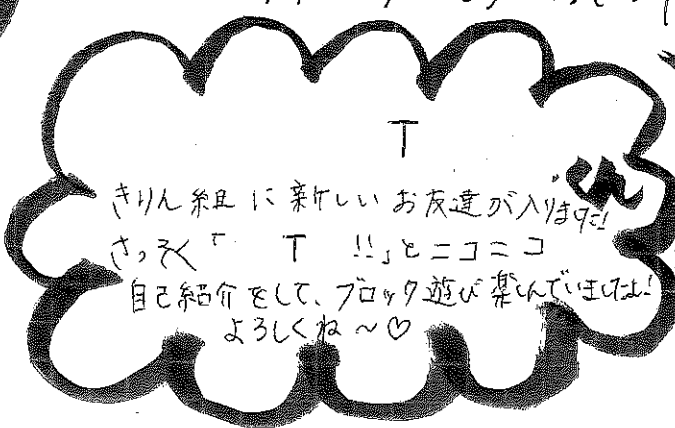 T
くん
きりん組に新しいお友達が入りました!
さっそく「T!!」とニコニコ
自己紹介をして、ブロック遊び楽しんでいましたよ!
よろしくね～♡